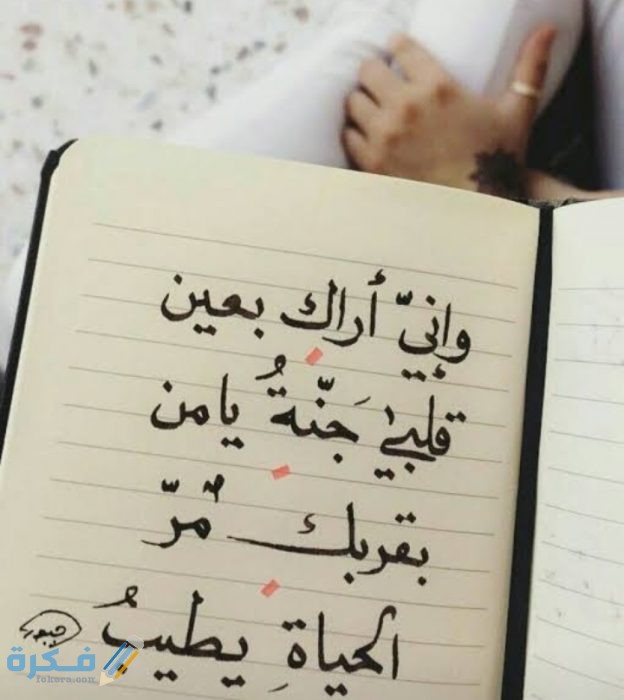 وإنيّ أراك بعين
قلبيْ جَنّةُ يامن
بقربك مُرّ
الحياةِ يطيبُ
فكرة
fekera.com